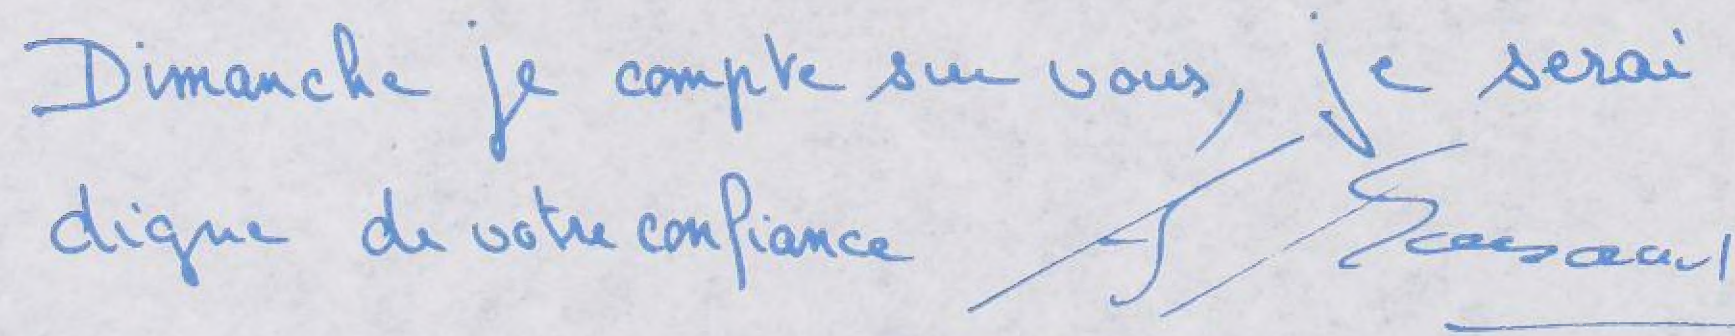 Dimanche je compte sur vous, je serai
digne de votre confiance